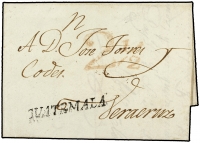 A D. Jon Torres
Codes.
GUATEMALA
Veracruz